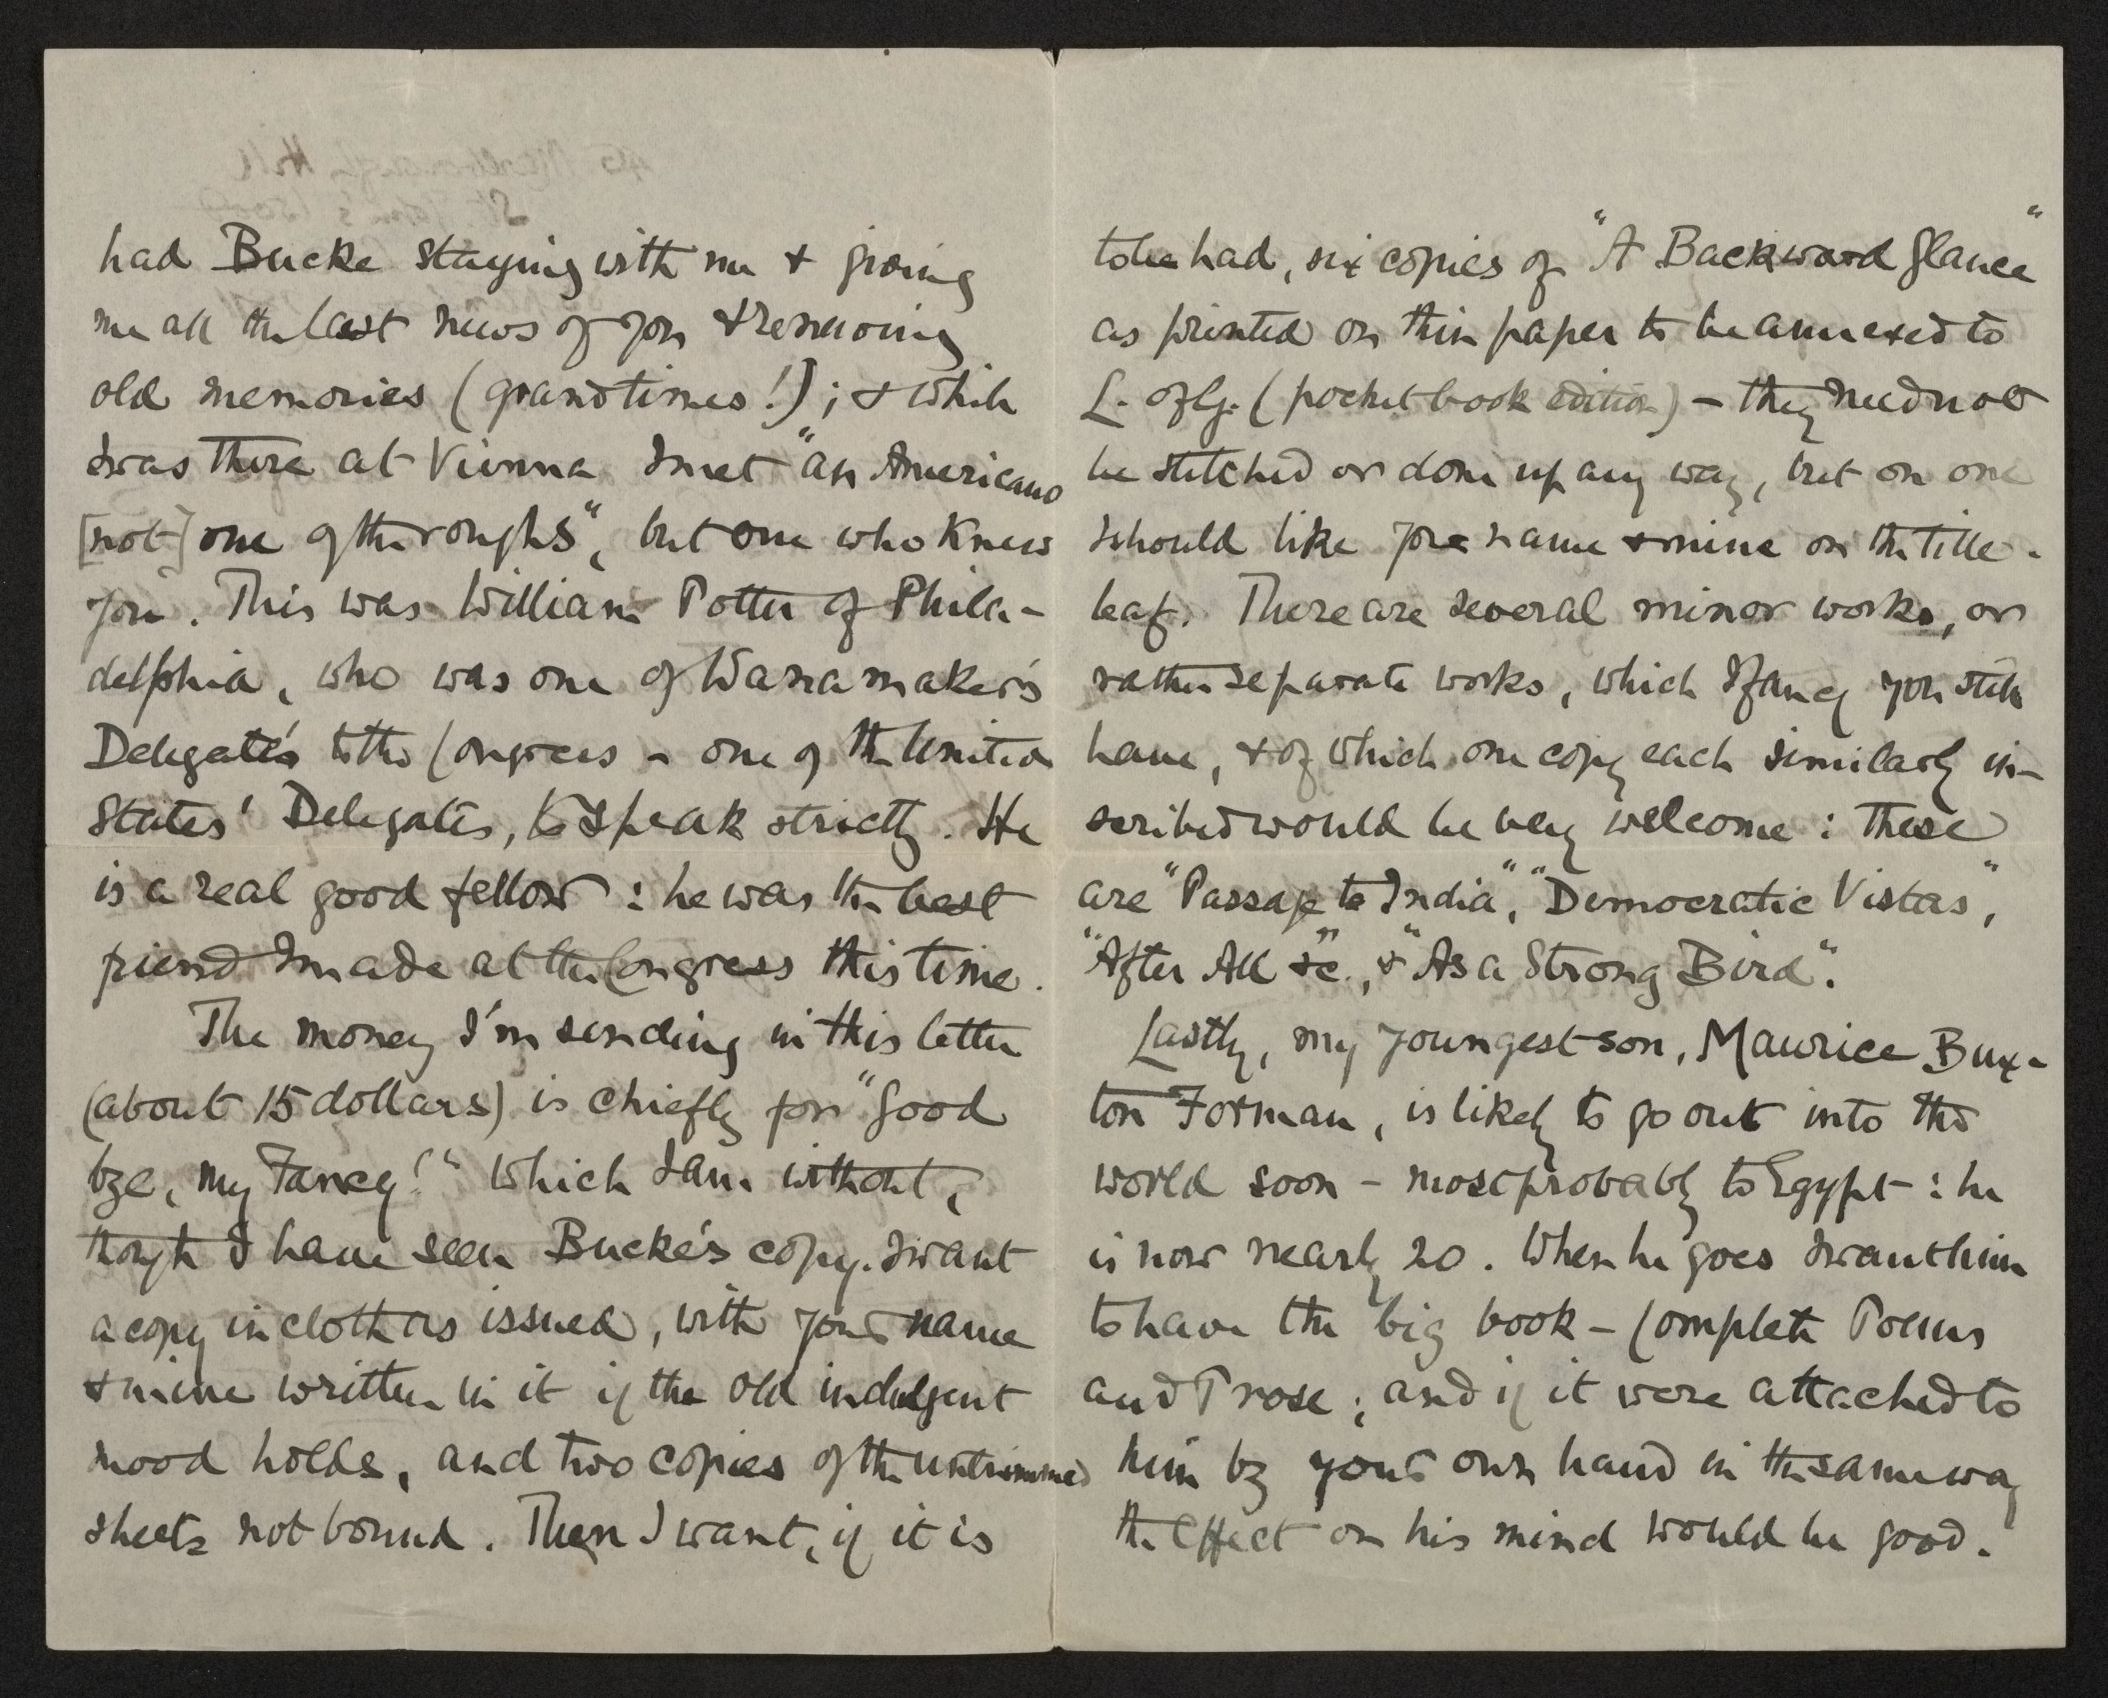 had Bucke staying with me & giving
me all the last news of you & renewing
old memories (grand times!); & while
I was there at Vienna I met "an American
[not] one of the roughs", but one who knew
you. This was William Potter of Phila-
delphia, who was one of Wanamaker's
Delegates to the Congress – one of the United
States' Delegates, to speak strictly. He
is a real good fellow: he was the best
friend I made at the Congress this time.
The money I'm sending in this letter
(about 15 dollars) is chiefly for "Good
bye, my Fancy!" which I am without,
though I have seen Bucke's copy. I want
a copy in cloth as issued, with your name
& mine written in it if the old indulgent
mood holds, and two copies of the untrimmed
sheets not bound. Then I want, if it is
to be had, six copies of "A Backward Glance"
as printed on thin paper to be annexed to
L. of G. (pocket book edition) – they need not
be stitched or done up any way, but on one
I should like your name & mine on the title-
leaf. There are several minor works, or
rather separate works, which I fancy you still
have, & of which one copy each similarly in-
scribed would be very welcome: these
are "Passage to India", "Democratic Vistas",
"After All &c.", & "As a Strong Bird".
Lastly, my youngest son, Maurice Bux-
ton Forman, is likely to go out into the
world soon – most probably to Egypt: he
is now nearly 20. When he goes I want him
to have the big book – Complete Poems
and Prose; and if it were attached to
him by your own hand in the same way
the effect on his mind would be good.